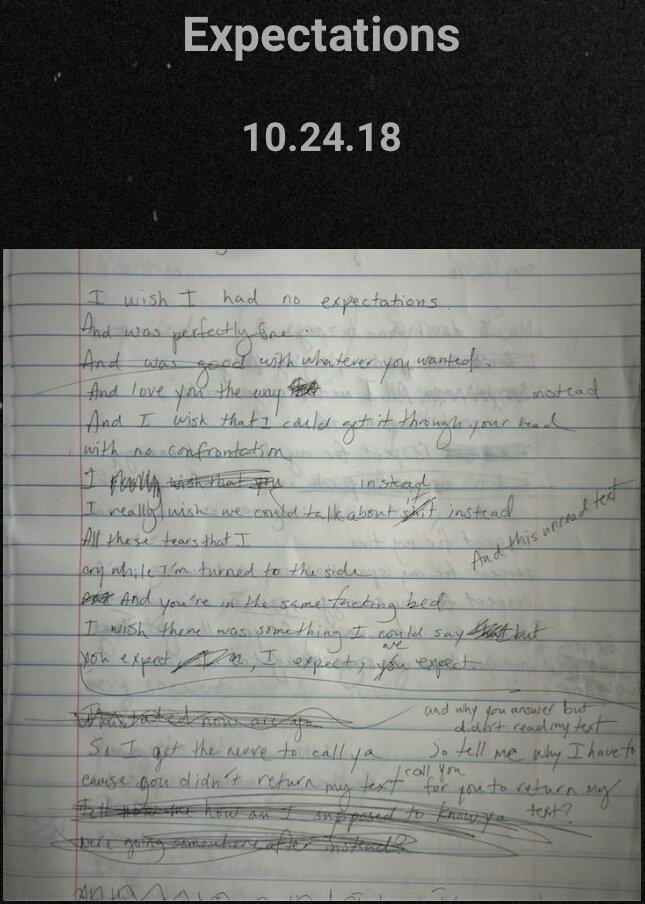 Expectations
10.24.18
I wish I had no expectations.
And was perfectly fine
And was good with whatever you wanted.
And love you the way instead
And I wish that I could get it through your head
with no confrontation
I really wish that you instead
I really wish we could talk about shit it instead
And this unread text
All these tears that I
cry while I'm turned to the side
And you're in the same fucking bed
I wish there was something I could say but
you expect, I expect, you we expect.
and why you answer but
didn't read my text
So I get the nerve to call ya
So tell me why I have to
cause you didn't return my text
call you
for you to return my
text?
tell now me how am I supposed to know ya
were going somewhere after instead?